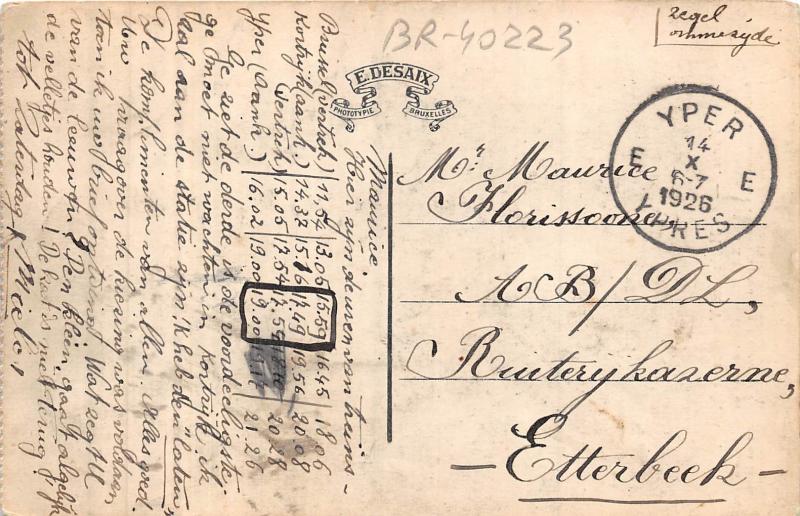 BR-40223
zegel
ommezijde
E. DESAIX
PHOTOTYPIE BRUXELLES
YPER
14
X
6-7
1926
E E
YPRES
Mr. Maurice
Florissoone,
AB/DL,
Ruiterijkazerne,
- Etterbeek -
Maurice.
Hier zijn de uren van treins -
Brussel (vertrek) 11,57 13.05 16.45 18.06
Kortrijk (aank.) 14.37 15.16 17.49 19.56 20.08
(vertrek) 15.05 17.54 20.28
Yper (Aank.) 16.02 19.00 19.00 21.26
Ge ziet de derde is de voordeeligste.
ge moet niet wachten in Kortrijk ik
zal aan de statie zijn 'k heb den "laten"
De komplimenten van allen. Alles goed.
Uw vraag over de kiesing was voldaan
toen ik uw brief ontving. Wat zegt U
van de Leeuw? Den kleen gaat algelijk
de velletjes houden! De is niet terug!
tot Zaterdag, Miele,